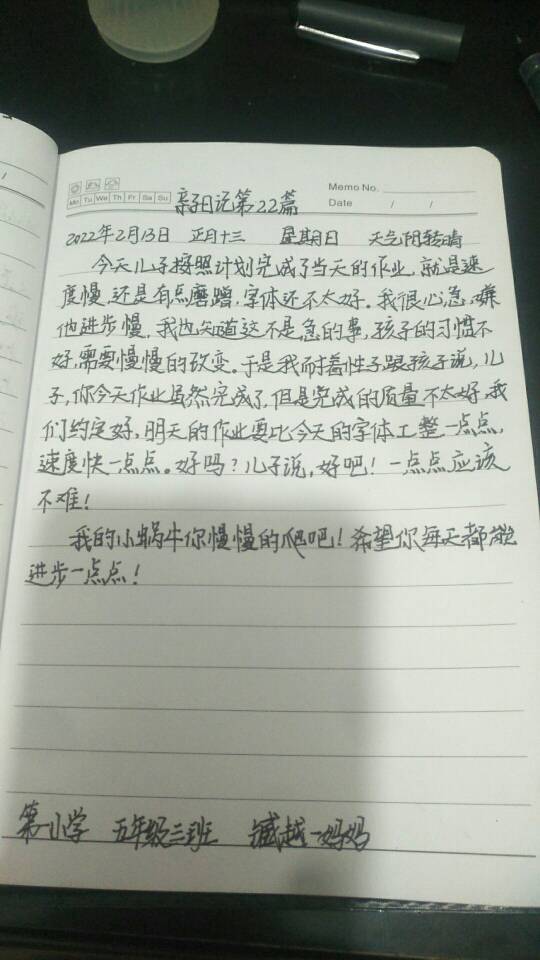 Memo No.
Mo Tu We Th Fr Sa Su
Date / /
亲子日记第22篇
2022年2月13日 正月十三 星期日 天气阴转晴
今天儿子按照计划完成了当天的作业,就是速
度慢,还是有点磨蹭,字体还不太好。我很心急,嫌
他进步慢,我也知道这不是急的事,孩子的习惯不
好,需要慢慢的改变。于是我耐着性子跟孩子说,儿
子,你今天作业虽然完成了,但是完成的质量不太好,我
们约定好,明天的作业要比今天的字体工整一点点,
速度快一点点。好吗?儿子说,好吧!一点点应该
不难!
我的小蜗牛你慢慢的爬吧!希望你每天都能
进步一点点!
第一小学 五年级三班 臧越一妈妈